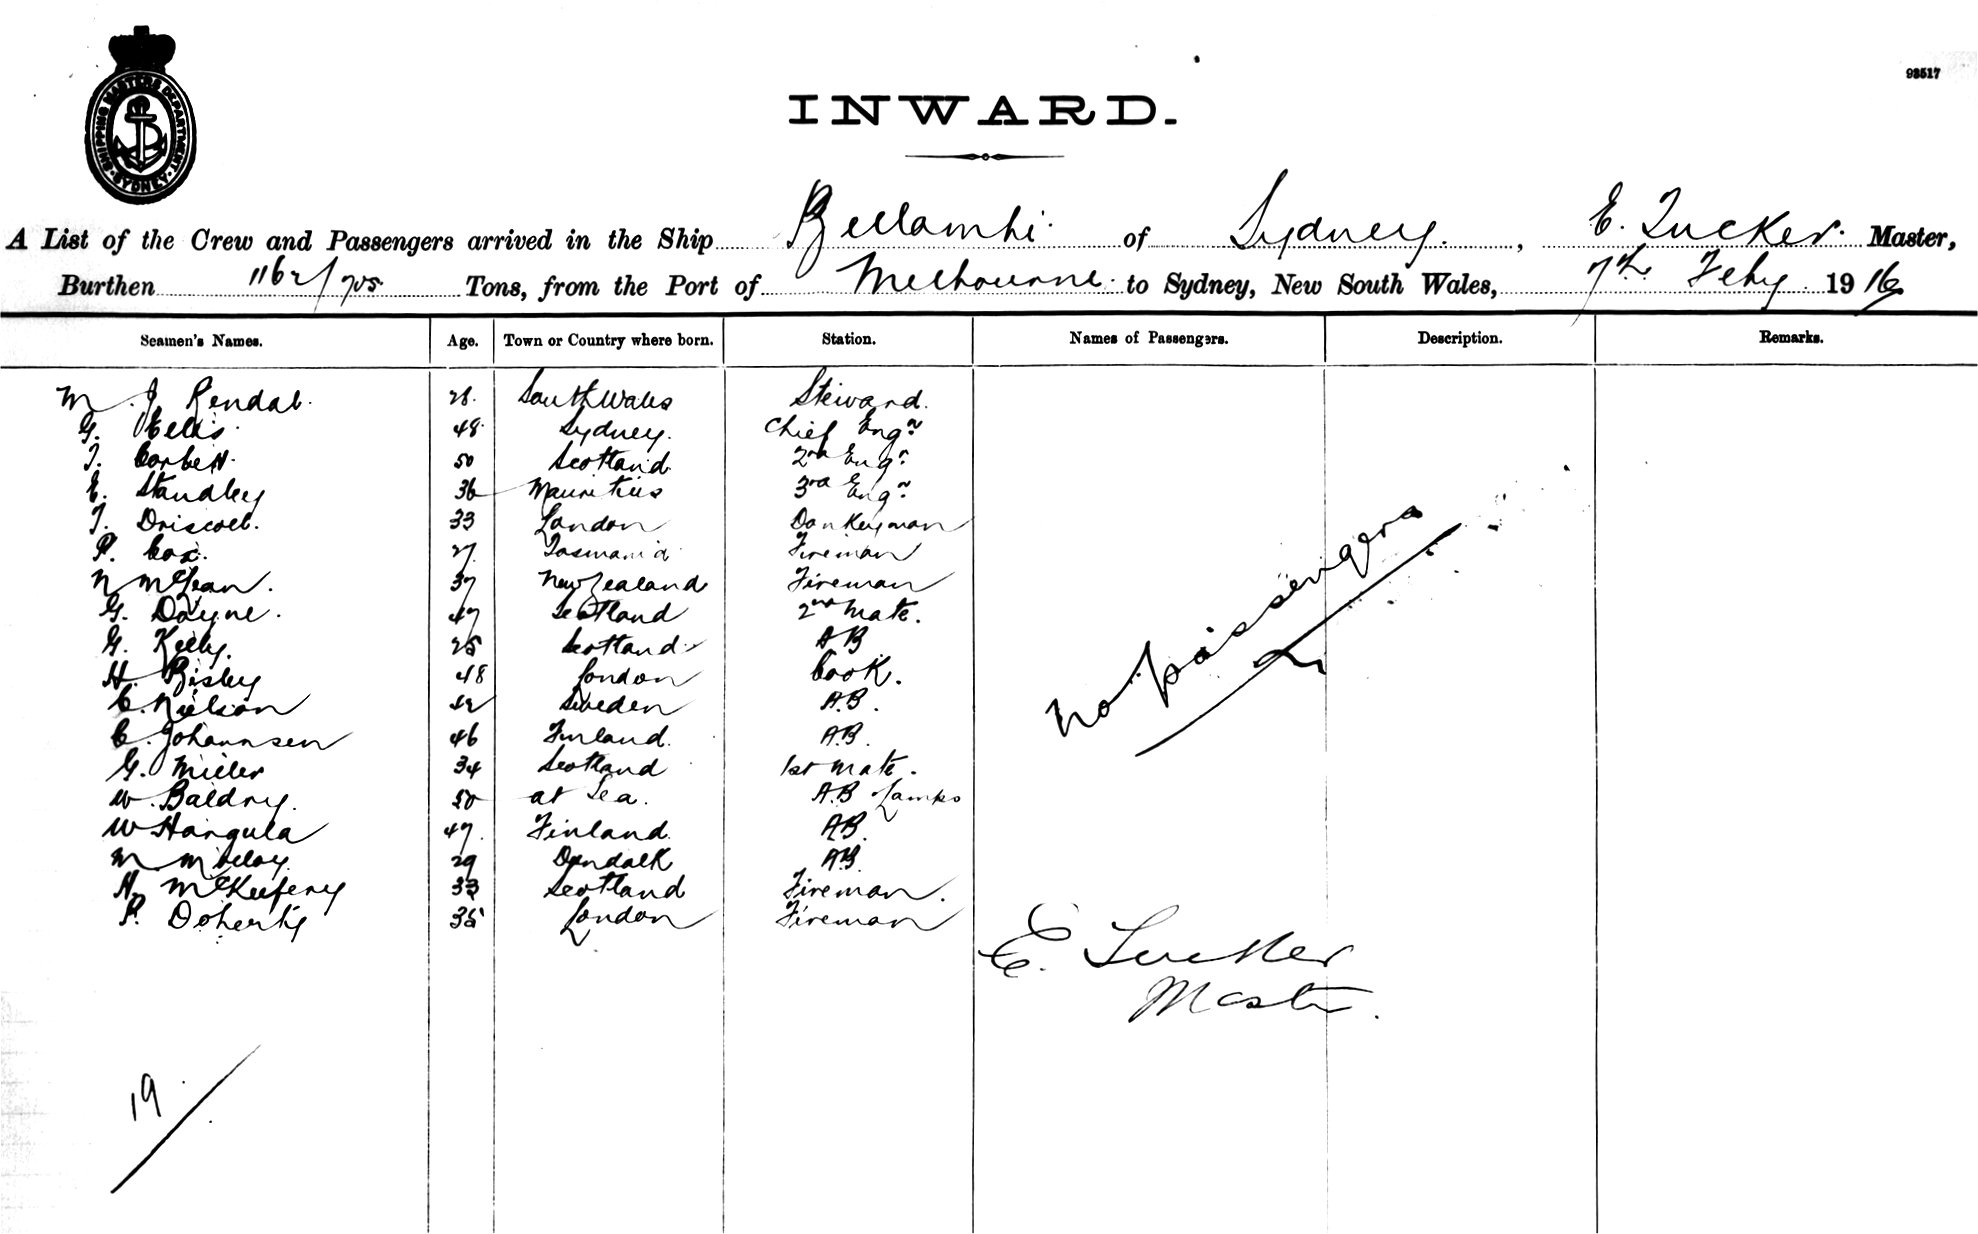 SHIPPING MASTERS DEPARTMENT. SYDNEY
93517
INWARD.
A List of the Crew and Passengers arrived in the Ship Bellambi of Sydney, E. Tucker. Master,
Burthen 1162/705 Tons, from the Port of Melbourne to Sydney, New South Wales, 7th Feby 1916
Seamen's Names. Age. Town or Country where born. Station. Names of Passengers. Description. Remarks.
M. J Rendal. 28. South Wales Steward.
G. Ellis. 48 Sydney. Chief Engr.
T. Corbett. 50 Scotland 2nd Engr.
E. Standley 36 Mauritius 3rd Engr.
T. Driscoll. 33 London Donkeyman
P. Cox. 27. Tasmania Fireman
N McLean. 37 New Zealand Fireman
G. Dayne. 47 Scotland 2nd Mate.
G. Kelly. 25 Scotland AB
H. Bisley 48 London Cook.
C. Nielson Sweden A.B.
C. Johannsen 46 Finland. A.B.
G. Miller 34 Scotland 1st Mate.
W. Baldry. 50 at Sea. A.B Lamps
W Hangula 47. Finland. AB.
M 29 Dundalk AB.
H. 33 Scotland Fireman.
P. Doherty 35 London Fireman
No passengers
E. Tucker
Master.
19